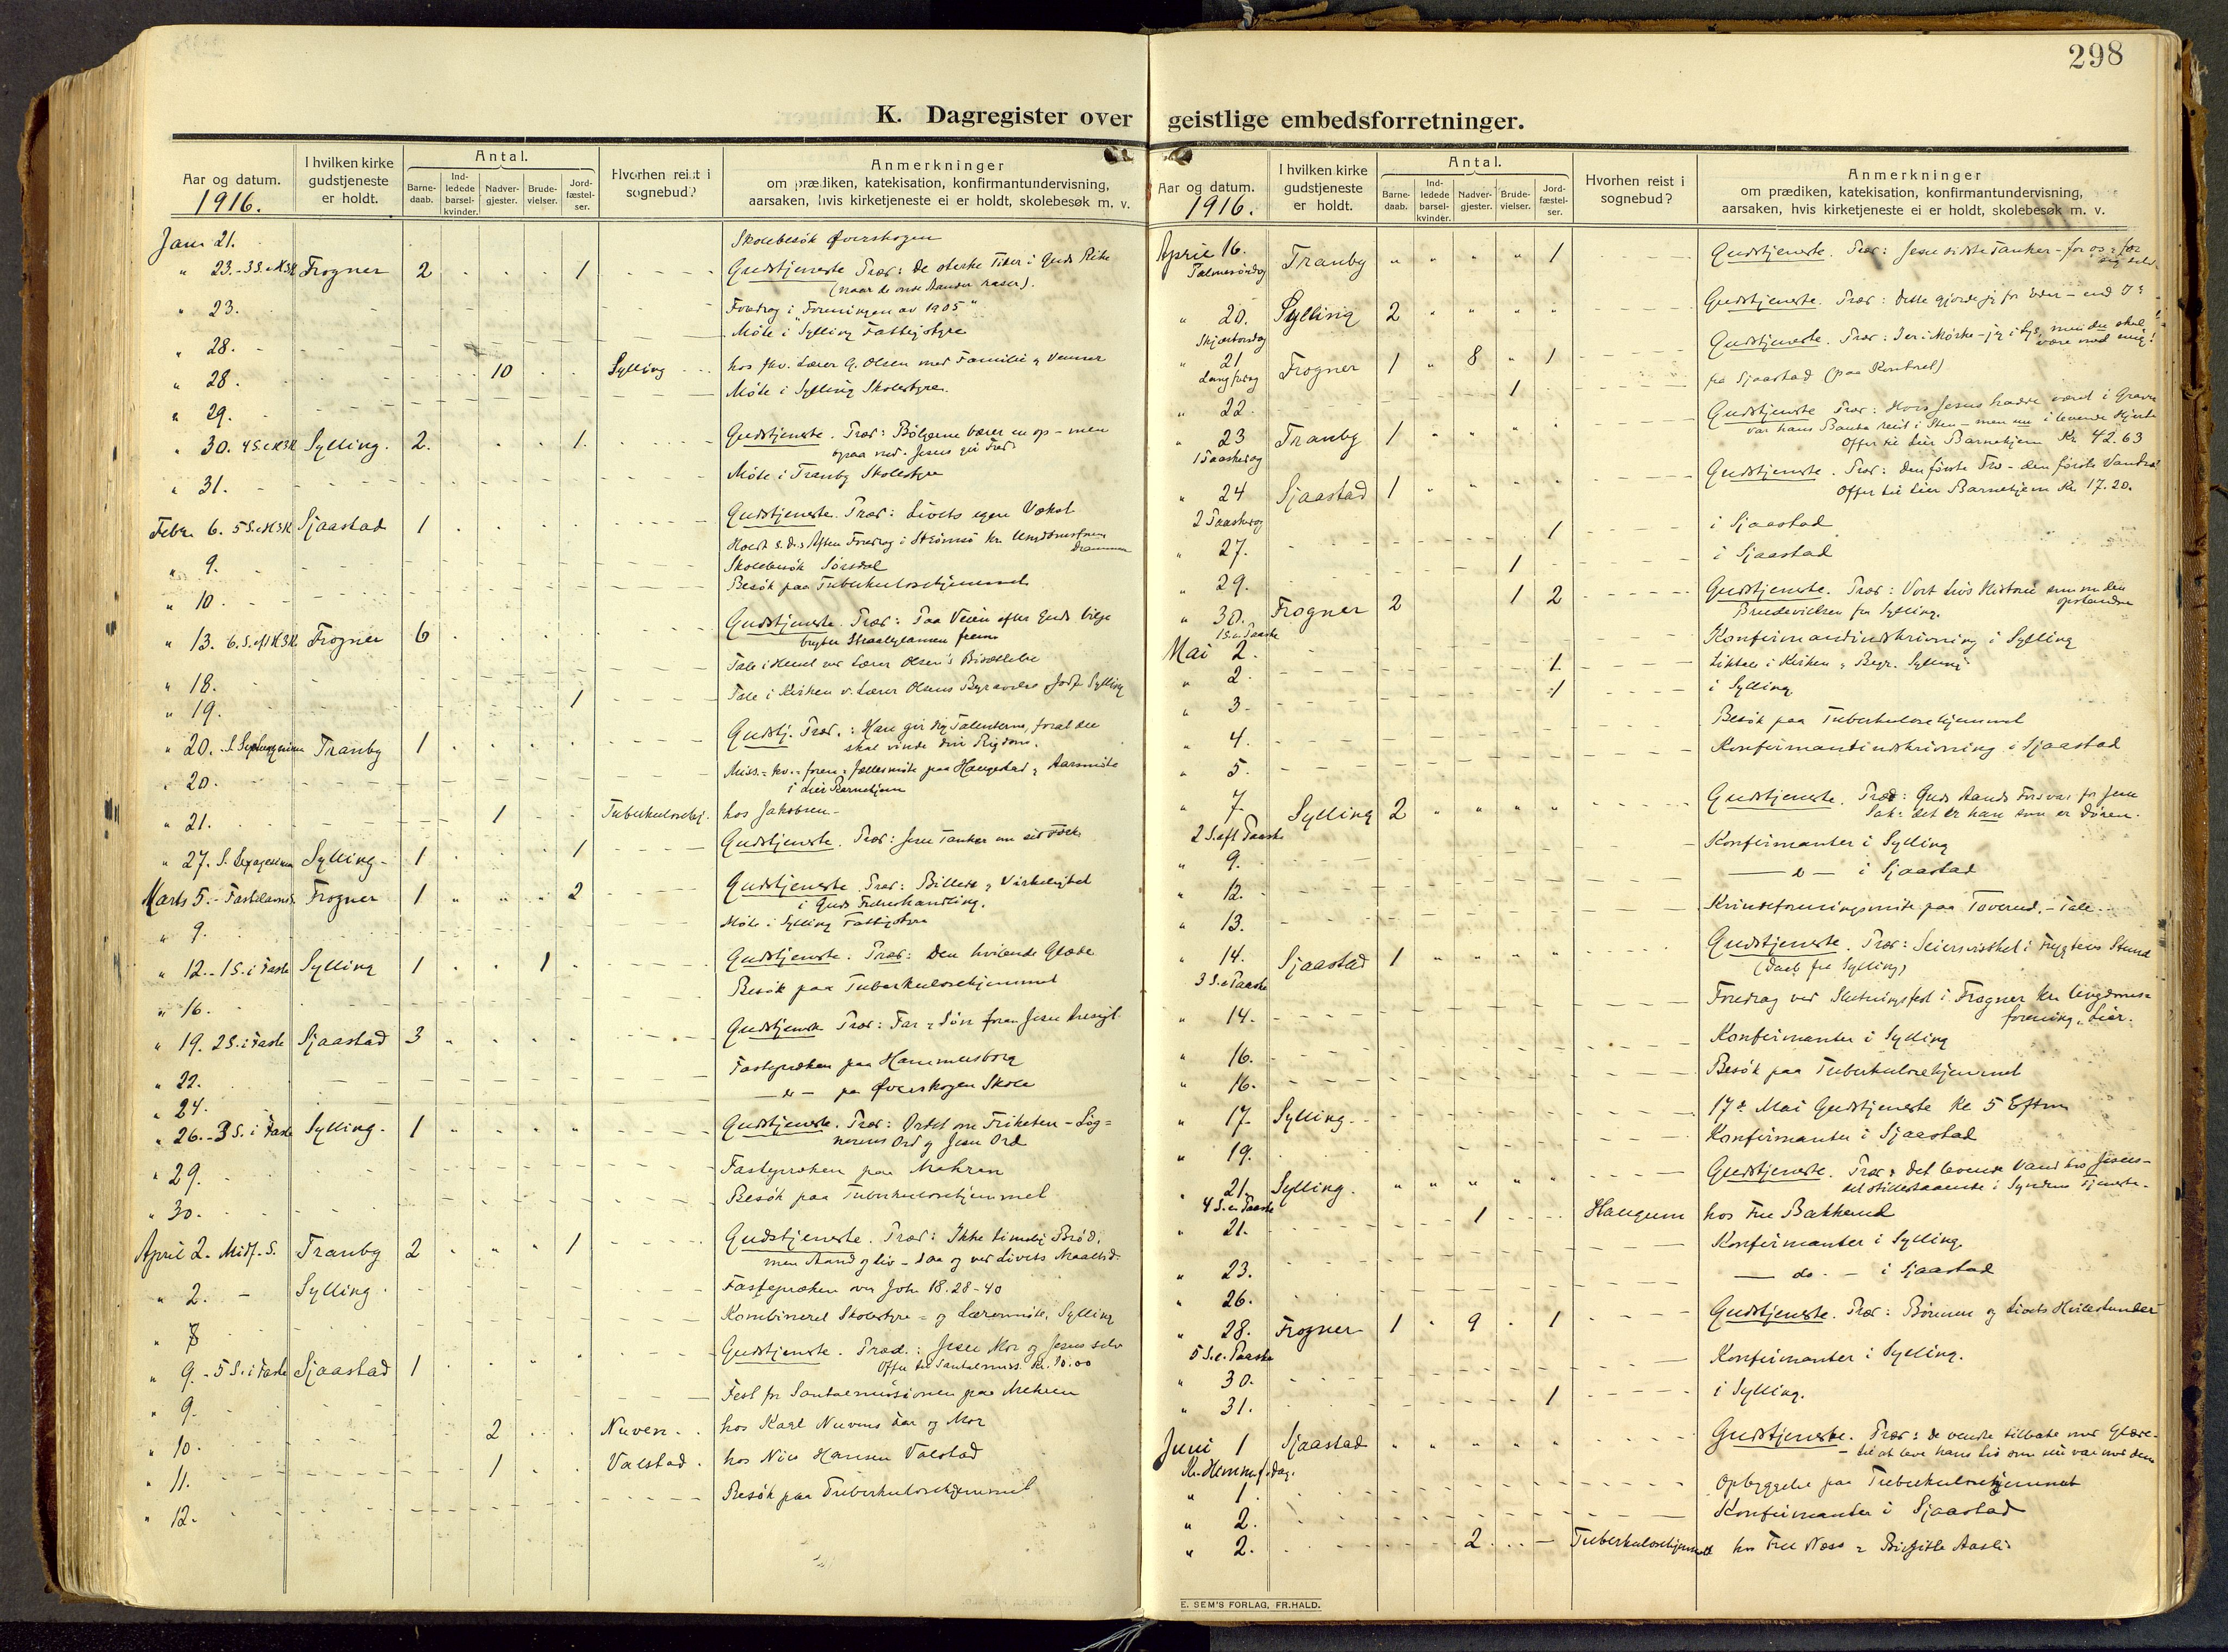 298
K. Dagregister over geistlige embedsforretninger.
Aar og datum. 1916.
I hvilken kirke gudstjeneste er holdt.
Antal.
Barne-daab.
Ind-ledede barsel-kvinder.
Nadver-gjester.
Brude-vielser.
Jord-fæstel-ser.
Hvorhen reist i sognebud?
Anmerkninger
om prædiken, katekisation, konfirmantundervisning,
aarsaken, hvis kirketjeneste ei er holdt, skolebesøk m. v.
Jan. 21. Skolebesök Överskogen
" 23. - 3 S. e. H3K Frogner 2 1 Gudstjeneste Præd: De sterke Tider i Guds Rike
(naar de onde Aander raser).
" 23. Foredrag i "Foreningen av 1905"
" 28. Möte i Sylling Fattigstyre
" 28. 10 Sylling hos fhv. Lærer G. Olsen med Familie og Venner
" 29. Möte i Sylling Skolestyre
" 30. 4 S. e. H3K Sylling. 2. 1. Gudstjeneste. Præd: Bölgerne bærer en op - men
ogsaa ned. Jesus gir Fred.
" 31. Möte i Tranby Skolestyre
Febr. 6. 5 S. e. H3K Sjaastad 1 Gudstjeneste. Præd: Livets egen Vækst
Holdt s. d.s Aften Foredrag i Strömsö kr. Ungdomsforen.
Drammen
" 9. Skolebesök Sörsdal
" 10. Besök paa Tuberkulosehjemmet
" 13. 6. S. e. H3K. Frogner 6 Gudstjeneste. Præd: Paa Veien efter Guds Vilje
bryter Straaleglansen frem
" 18. Tale i Hjemmet ved Lærer Olsen's Bisættelse
" 19. 1 Tale i Kirken v. Lærer Olsens Begravelse Jordf. Sylling
" 20. S. Septuagesima Tranby 1 Gudstj. Præd.: Han gir dig Talenterne, forat du
skal vinde din Rigdom.
" 20. Miss. = kv. = foren. = fællesmöte paa Haugestad, Aarsmöte
i Lier Barnehjem
" 21. 1 Tuberkulosehj. hos Jakobsen
" 27. S. Sexagesima Sylling 1 1 Gudstjeneste. Præd: Jesu Tanker om sit Folk
Marts 5. - Fastelavnss. Frogner 1 " " " 2 Gudstjeneste. Præd: Billede & Virkelighet
i Guds Frelseshandling.
" 9. Möte i Sylling Fattigstyre
" 12. - 1 S. i Faste Sylling 1 1 Gudstjeneste. Præd: Den hvilende Glæde
" 16. Besök paa Tuberkulosehjemmet
" 19. 2 S. i Faste Sjaastad 3 Gudstjeneste Præd: Far & Sön foran Jesu Aasyn
" 22. Fasteprædken paa Hammersborg
" 24. — do — paa Överskogen Skole
" 26. - 3 S. i Faste Sylling 1 Gudstjeneste. Præd: Ordet om Friheten - Løg=
nerens Ord og Jesu Ord
" 29. Fasteprædken paa Mehren
" 30. Besök paa Tuberkulosehjemmet
April 2. Midf. S. Tranby 2 1 Gudstjeneste. Præd: Ikke timelig Bröd,
men Aand og liv - saa og ved Livets Maaltid
" 2. - Sylling. Fasteprædken over Joh. 18. 28-40
" 8 Kombineret Skolestyre = og Lærermöte, Sylling
" 9. - 5 S. i Faste Sjaastad 1 Gudstjeneste. Præd.: Jesu Mor og Jesus selv
Offer til Santalmiss. Kr. 10.00
" 9. Fest for Santalmissionen paa Mehren
" 10. 2 Nuven. hos Karl Nuvens Far og Mor
" 11. 1 Valstad. hos Nils Hansen Valstad
" 12. Besök paa Tuberkulosehjemmet
Aar og datum. 1916.
I hvilken kirke gudstjeneste er holdt.
Antal.
Barne-daab.
Ind-ledede barsel-kvinder.
Nadver-gjester.
Brude-vielser.
Jord-fæstel-ser.
Hvorhen reist i sognebud?
Anmerkninger
om prædiken, katekisation, konfirmantundervisning,
aarsaken, hvis kirketjeneste ei er holdt, skolebesøk m. v.
April 16. Palmesöndag Tranby " " " " 1 Gudstjeneste. Præd: Jesu sidste Tanker - for os & for
sig selv.
" 20. Skjærtorsdag Sylling 2 " " " " Gudstjeneste. Præd: Dette gjorde jeg for eder - end I?
" 21 Langfredag Frogner 1 " 8 " 1 Gudstjeneste. Præd: I er i Mörke - jeg i Lys, men du skal
være med mig!
" 22. 1 fra Sjaastad (paa Kontoret)
" 23 1 Paaskedag Tranby 1 Gudstjeneste Præd: Hvis Jesus hadde været i Graven
var hans Bauta reist i Sten - men nu i levende Hjerter
Offer til Lier Barnehjem Kr. 42.63
" 24 2 Paaskedag Sjaastad 1 Gudstjeneste. Præd: Den förste Tro - den förste Vandr.
Offer til Lier Barnehjem Kr. 17.20.
" 27. 1 i Sjaastad
" 29. 1 i Sjaastad
" 30. 1 S. e. Paaske Frogner 2 1 2 Gudstjeneste. Præd: Vort Livs Historie som om den
opstandne
Brudevielsen fra Sylling.
Mai 2. Konfirmandindskrivning i Sylling
" 2. 1. Liktale i Kirken & Begr. Sylling
" 3. 1 i Sylling
" 4. Besök paa Tuberkulosehjemmet
" 5. Konfirmantindskrivning i Sjaastad
" 7. 2 S. eft. Paaske Sylling 2 " " " " Gudstjeneste. Præd: Guds Aands Forsvar for Jesu
Sak: Det er han som er Dören.
" 9. Konfirmanter i Sylling
" 12. — do — i Sjaastad
" 13. Kvindeforeningsmöte paa Toverud. - Tale.
" 14. 3 S. e. Paaske Sjaastad 1 " " " " Gudstjeneste. Præd: Seiersvisshet i Frygtens Stund
(Daab fra Sylling)
" 14. Foredrag ved Slutningsfest i Frogner kr. Ungdoms=
forening, Lier.
" 16. Konfirmanter i Sylling
" 16. Besök paa Tuberkulosehjemmet
" 17. Sylling. 17de Mai Gudstjeneste Kl 5 Eftm
" 19. Konfirmanter i Sjaastad
" 21. 4 S. e. Paaske Sylling. " " " " " Gudstjeneste. Præd: Det levende Vand hos Jesus -
det stillestaaende i Syndens Tjeneste.
" 21. 1 Haugum hos Fru Bakkerud
" 23. Konfirmanter i Sylling.
" 26. — do. — i Sjaastad
" 28. 5 S. e. Paaske Frogner 1 9 1 Gudstjeneste. Præd: Bönnen og Livets Hvilestunder
" 30. Konfirmanter i Sylling.
" 31. 1 i Sylling.
Juni 1 Kr. Himmelf.dag. Sjaastad Gudstjeneste. Præd: De vendte tilbake med Glæde -
- til at leve hans liv som nu var med dem
" 1. Opbyggelse paa Tuberkulosehjemmet
" 2. Konfirmanter i Sjaastad
" 2. 2 Tuberkulosehjemmet hos Fru Næss & Birgitte Aasli.
E. SEM'S FORLAG, FR.HALD.